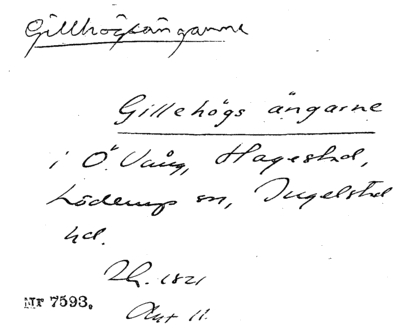 Gillhögsängarne
Gillehögs ängarne
i Ö. Vång, Hagestad,
Löderup sn, Ingelstad
hd.
Lh. 1821
Akt 11.
Nr 7593.